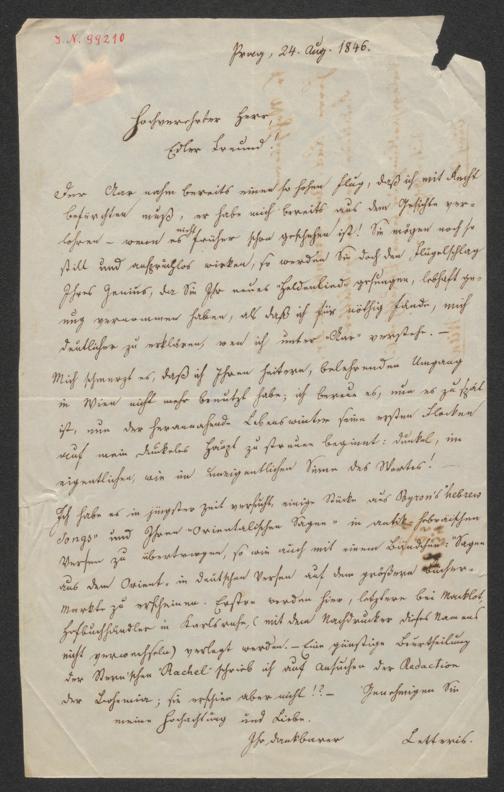 J. N. 99210
Prag, 24. Aug. 1846.
Hochverehrter Herr,
Edler Freund!
Der Aar nahm bereits einen so hohen Flug, daß ich mit Recht
befürchten muß, er habe mich bereits aus dem Gesichte ver-
lohren – wenn es nicht früher schon geschehen ist! Sie mögen noch so
still und anspruchlos wirken, so werden Sie doch den Flügelschlag
Ihres Genius, da Sie Ihr neues Heldenlied gesungen, lebhaft ge-
nug vernommen haben, als daß ich für nöthig fände, mich
deutlicher zu erklären, wen ich unter "Aar" verstehe. —
Mich schmerzt es, daß ich Ihren heitern, belehrenden Umgang
in Wien nicht mehr benutzt habe; ich bereue es, nun es zu spät
ist, nun der herannahende Lebenswinter seine ersten Flocken
auf mein dunkeles Haupt zu streuen beginnt: dunkel, im
eigentlichen, wie im uneigentlichen Sinne des Wortes! —
Ich habe es in jüngster Zeit versucht, einige Stücke aus Byron's "hebrew
songs" und Ihren "Orientalischen Sagen" in antik-hebräischen
Versen zu übertragen, so wie auch mit einem Bändchen: "Sagen
aus dem Orient" in deutschen Versen auf dem größern Bücher-
Markte zu erscheinen. Erstere werden hier, letztere bei Macklot,
Hofbuchhändler in Karlsruhe, (mit dem Nachdrucker dieses Namens
nicht verwechseln) verlegt werden. – Eine günstige Beurtheilung
der Stern'schen "Rachel" schrieb ich auf Ansuchen der Redaction
der Bohemia; sie erschien aber nicht!?– Genehmigen Sie
meine Hochachtung und Liebe.
Ihr dankbarer Letteris.